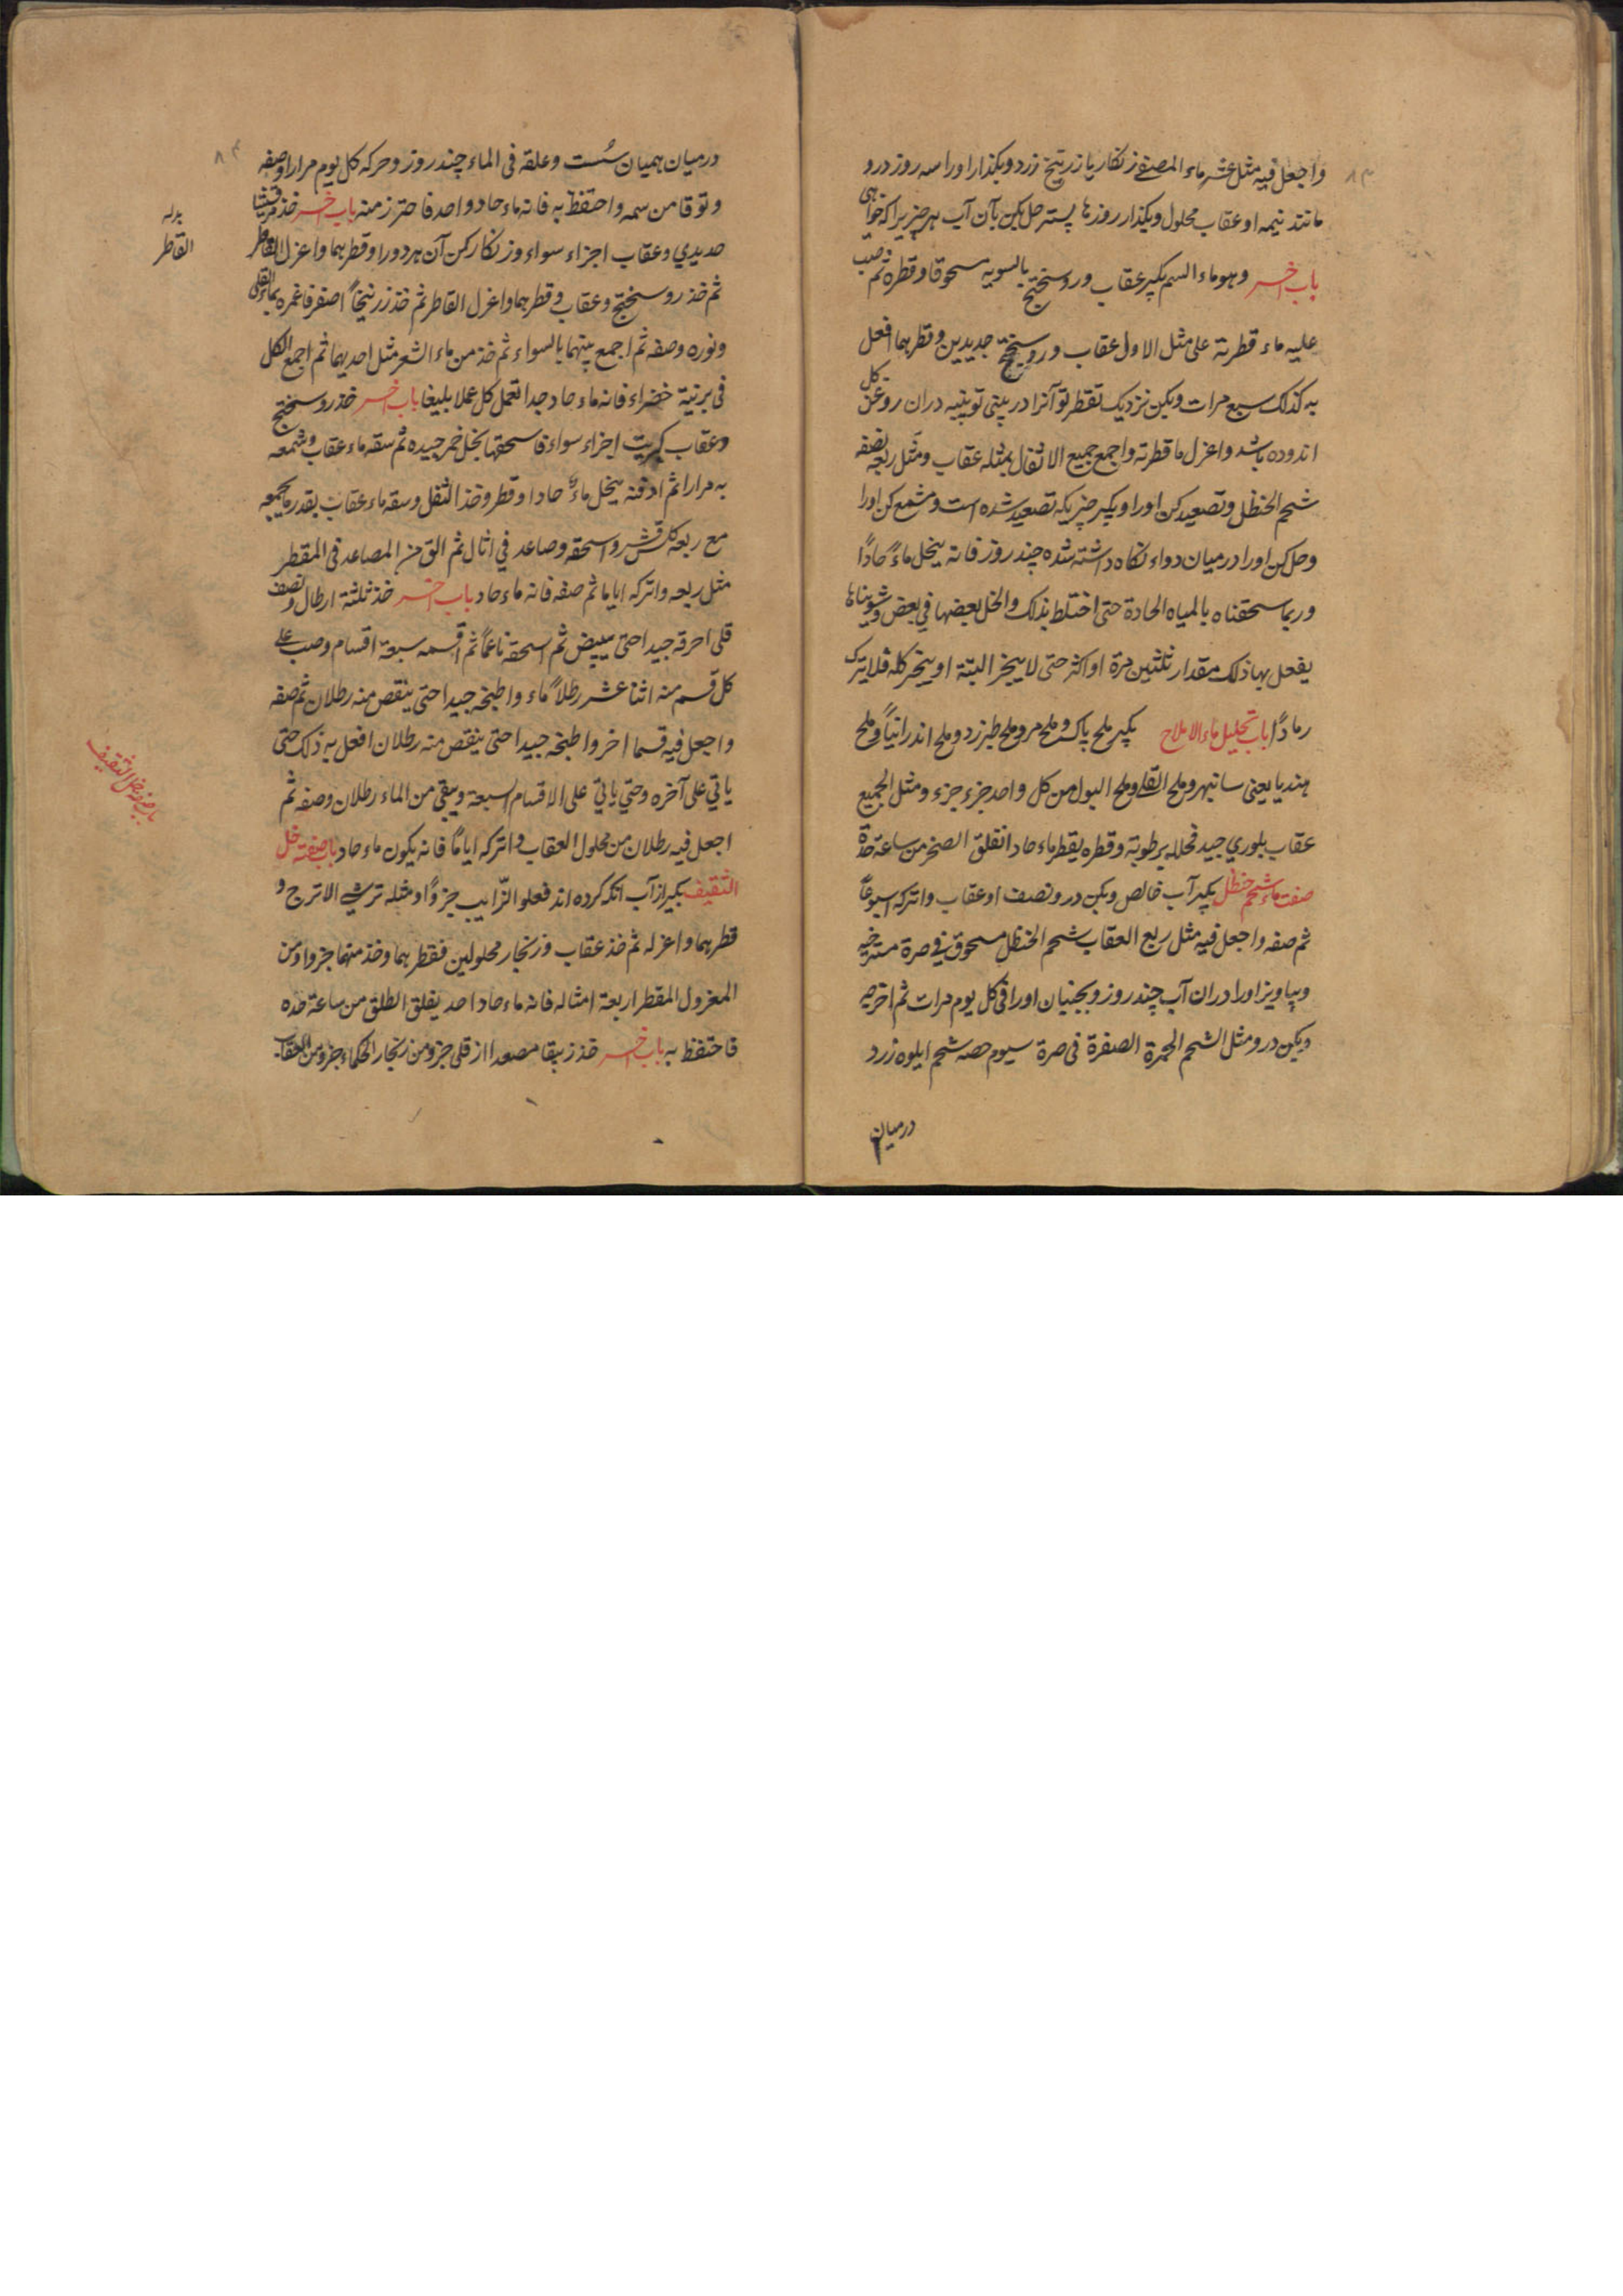 واجعل فیه مثل عشر ماء المصفی زنکار یا زرنیخ زرد وبکذار اورا سه روز در و
مانند نیمه او عقاب محلول وبکذار روزها پسته حل بکن بآن آب هر چیز یرا که خواهی
باب آخر وهو ماء السم بکیر عقاب وروسختج بالسویه مسحوقا وقطره ثم صب
علیه ماء قطرته علی مثل الاول عقاب وروسختج جدیدین وقطرهما افعل
به کذلک سبع مرات وبکن نزدیک تقطر تو آنرا در بینی تو پنبه دران روغن کل
اندوده باشد واعزل ما قطرته واجمع جمیع الاثفال بمثله عقاب ومثل ربعه نصفه
شحم الحنظل وتصعید کن اورا وبکیر چیزیکه تصعید شده است ومشمع کن اورا
وحل کن اورا درمیان دواء نکاه داشته شده چند روز فانه ینحل ماءً حادًا
وربما سحقناه بالمیاه الحادة حتی اختلط بذلک والخل بعضها فی بعض وشویناها
یفعل بها ذلک مقدار ثلثین مرة او اکثر حتی لا یبخر البتة او یبخر کله فلا یترک
رمادًا باب تحلیل ماء الاملاح بکیر ملح پاک وملح مر وملح طبرزد وملح اندرانیاً وملح
هندیا یعنی سانبهر وملح القلی وملح البول من کل واحد جزء جزء ومثل الجمیع
عقاب بلوری جید فحلله برطوبة وقطره یقطر ماء حاد انفلق الصخر من ساعة حدة
صفت ماء شحم حنظل بکیر آب خالص وبکن در و نصف او عقاب واترکه اسبوعاً
ثم صفه واجعل فیه مثل ربع العقاب شحم الحنظل مسحوق فی صرة مسترخیه
وبیاویز اورا دران آب چند روز وبجنبان اورا فی کل یوم مرات ثم اخرجه
وبکن در و مثل الشحم الحمرة الصفرة فی صرة سیوم حصه شحم ایلوه زرد
درمیان
٨٣
درمیان همیان سُست وعلقه فی الماء چند روز وحرکه کل یوم مرارا وصفه
وتوقا من سمه واحتفظ به فانه ماء حاد واحد فاحترز منه باب آخر خذ مرقشیثا
حدیدی وعقاب اجزاء سواء وزنکار کن آن هر دو را وقطرهما واعزل القاطر
ثم خذ روسختج وعقاب وقطرهما واعزل القاطر ثم خذ زرنیخاً اصفر فاغمره بماء القلی
ونوره وصفه ثم اجمع بینهما بالسواء ثم خذ من ماء الشعر مثل احدیهما ثم اجمع الکل
فی برنیة خضراء فانه ماء حاد جدا تعمل کل عملا بلیغا باب آخر خذ روسختج
وعقاب کبریت اجزاء سواء فاسحقها بخل خمر جیده ثم سقه ماء عقاب وشمعه
به مرارا ثم ادفنه ینحل ماءً حادا وقطر وخذ الثفل وسقه ماء عقاب بقدر ما یجمعه
مع ربعه کلس قشر واسحقه وصاعد فی اثال ثم الق من المصاعد فی المقطر
مثل ربعه واترکه ایاما ثم صفه فانه ماء حاد باب آخر خذ ثلثة ارطال ونصف
قلی احرقه جیدا حتی یبیض ثم اسحقه ناعماً ثم اقسمه سبعة اقسام وصب علی
کل قسم منه اثنا عشر رطلاً ماء واطبخه جیدا حتی ینقص منه رطلان ثم صفه
واجعل فیه قسما اخر واطبخه جیدا حتی ینقص منه رطلان افعل به ذلک حتی
یاتی علی آخره وحتی یاتی علی الاقسام السبعة ویبقی من الماء رطلان وصفه ثم
اجعل فیه رطلان من محلول العقاب واترکه ایاماً فانه یکون ماء حاد باب صفته خل
الثقیف بکیر از آب انکه کرده اند فعلو الزّابیب جزؤًا ومثله ترشی الاترج و
قطرهما واعزله ثم خذ عقاب وزنجار محلولین فقطرهما وخذ منهما جزوا ومن
المعزول المقطر اربعة امثاله فانه ماء حاد احد یفلق الطلق من ساعة حده
فاحتفظ به باب آخر خذ زیبقا مصعدا از قلی جزو من زنجار الحکماء جزو من العقاب
٨٤
القاطر